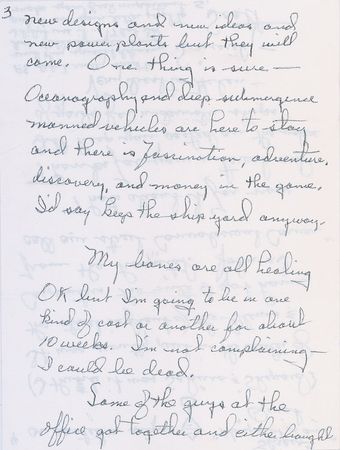 3
new designs and new ideas and
new power plants but they will
come. One thing is sure —
Oceanography and deep submergence
manned vehicles are here to stay
and there is fascination, adventure,
discovery, and money in the game.
I'd say keep the ship yard anyway.
My bones are all healing
OK but I'm going to be in one
kind of cast or another for about
10 weeks. I'm not complaining —
I could be dead.
Some of the guys at the
office got together and either brought